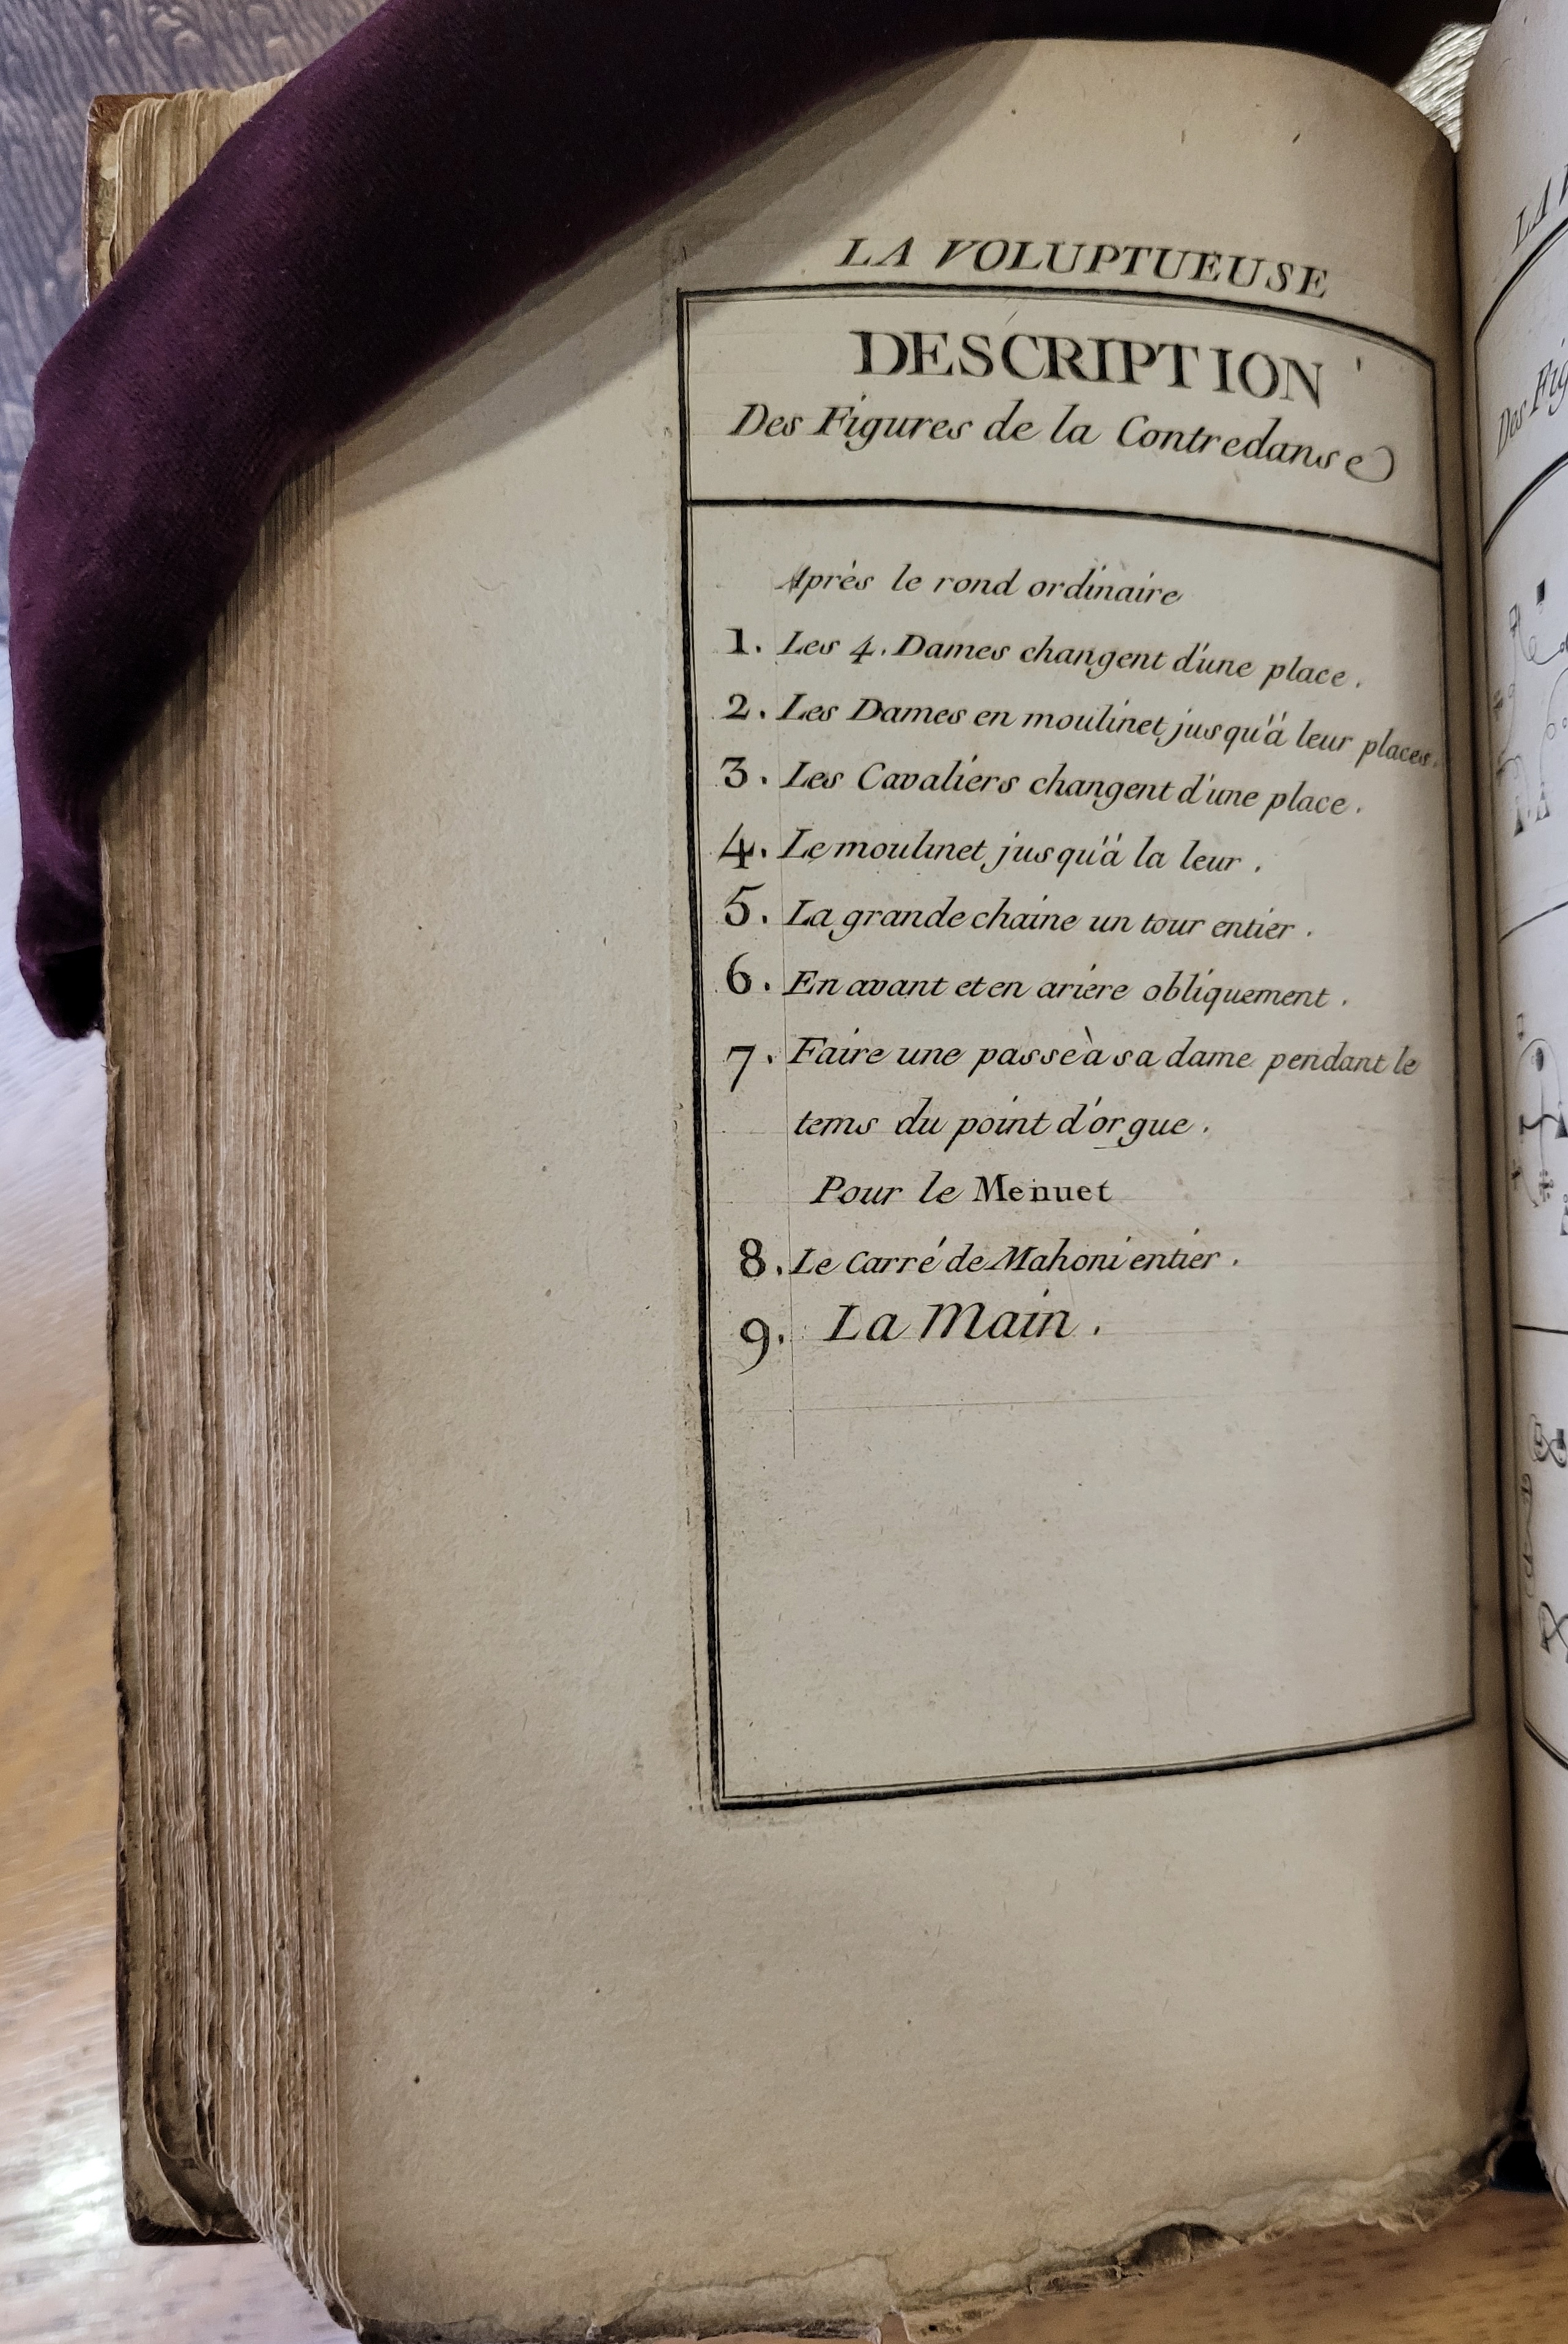 LA VOLUPTUEUSE
DESCRIPTION
Des Figures de la Contredanse
Après le rond ordinaire
1. Les 4. Dames changent d'une place.
2. Les Dames en moulinet jusqu'à leur places.
3. Les Cavaliers changent d'une place.
4. Le moulinet jusqu'à la leur.
5. La grande chaine un tour entier.
6. En avant et en ariere obliquement.
7. Faire une passe à sa dame pendant le
tems du point d'orgue.
Pour le Menuet
8. Le Carré de Mahoni entier.
9. La Main.
LA
Des Fig